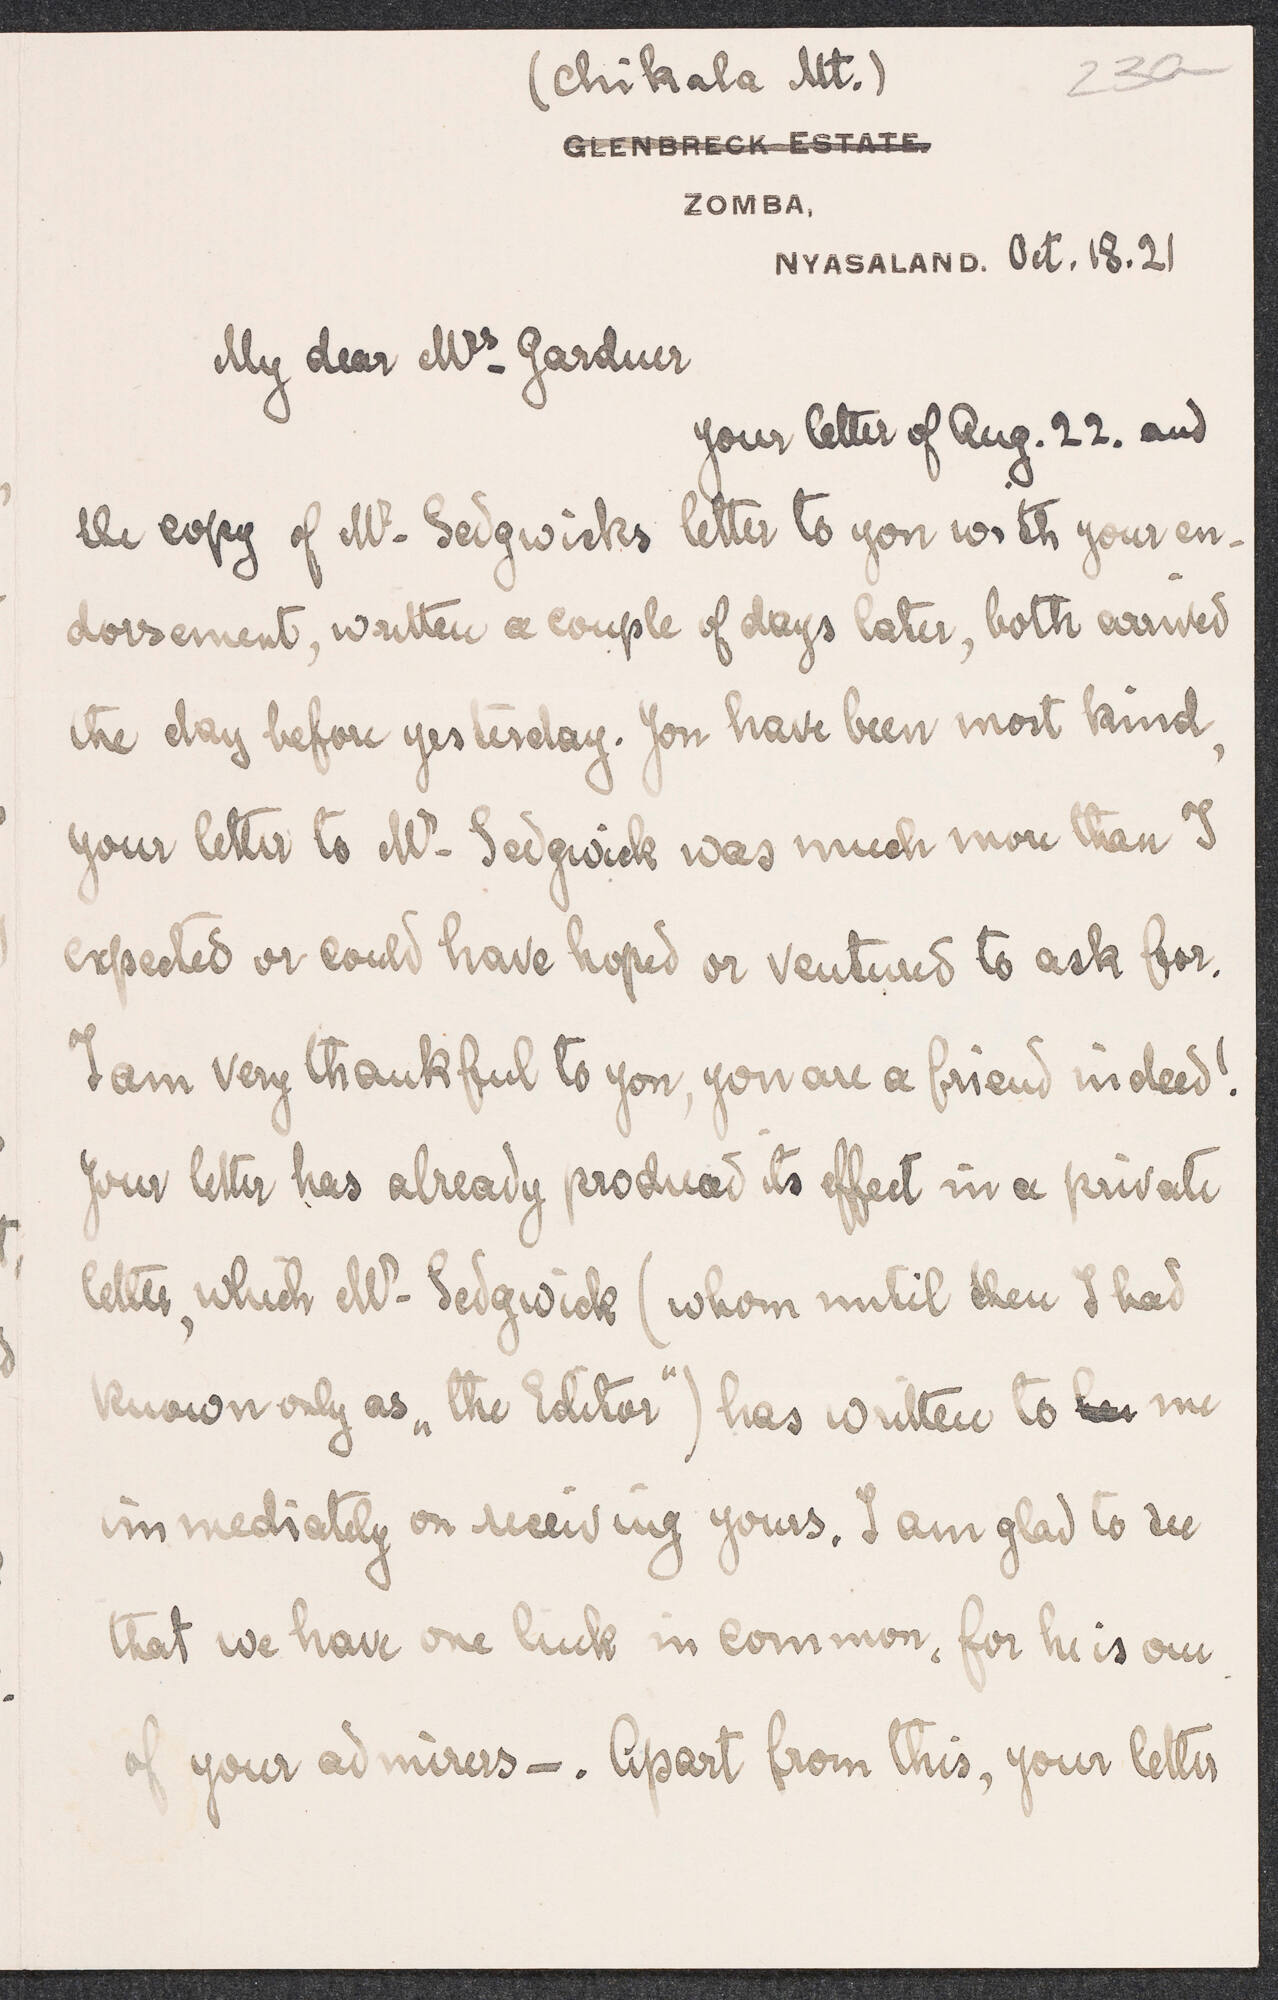 (Chikala Mt.)
23a
GLENBRECK ESTATE.
ZOMBA,
NYASALAND. Oct. 18. 21
My dear Mrs. Gardner
your letter of Aug. 22. and
the copy of Mr. Sedgwicks letter to you with your en-
dorsement, written a couple of days later, both arrived
the day before yesterday. You have been most kind,
your letter to Mr. Sedgwick was much more than I
expected or could have hoped or ventured to ask for.
I am very thankful to you, you are a friend indeed!.
Your letter has already produced its effect in a private
letter, which Mr. Sedgwick (whom until then I had
known only as „the Editor“) has written to me
immediately on receiving yours. I am glad to see
that we have one link in common, for he is one
of your admirers —. Apart from this, your letter